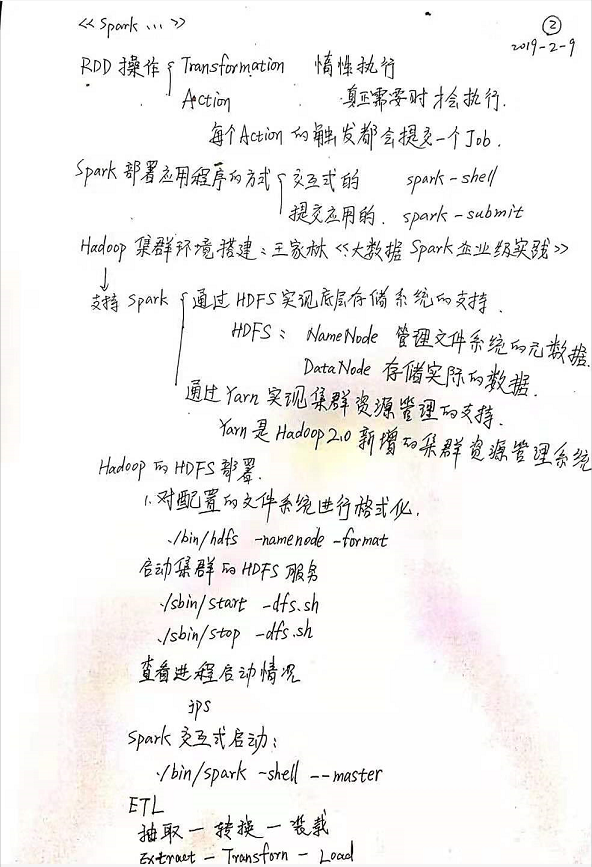 <<Spark ...>> ②
2019-2-9
RDD 操作 { Transformation 惰性执行
Action 真正需要时才会执行.
每个Action 的触发都会提交一个Job.
Spark 部署应用程序的方式 { 交互式的 spark-shell
提交应用的. spark-submit
Hadoop 集群环境搭建: 王家林 <<大数据 Spark 企业级实践>>
↓
支持 Spark { 通过 HDFS 实现底层存储系统的支持.
HDFS: NameNode 管理文件系统的元数据.
DataNode 存储实际的数据.
通过 Yarn 实现集群资源管理的支持.
Yarn 是 Hadoop 2.0 新增的集群资源管理系统
Hadoop 的 HDFS 部署.
1. 对配置的文件系统进行格式化.
./bin/hdfs -namenode -format
启动集群的 HDFS 服务
./sbin/start -dfs.sh
./sbin/stop -dfs.sh
查看进程启动情况
jps
Spark 交互式启动:
./bin/spark -shell --master
ETL
抽取 - 转换 - 装载
Extract - Transforn - Load